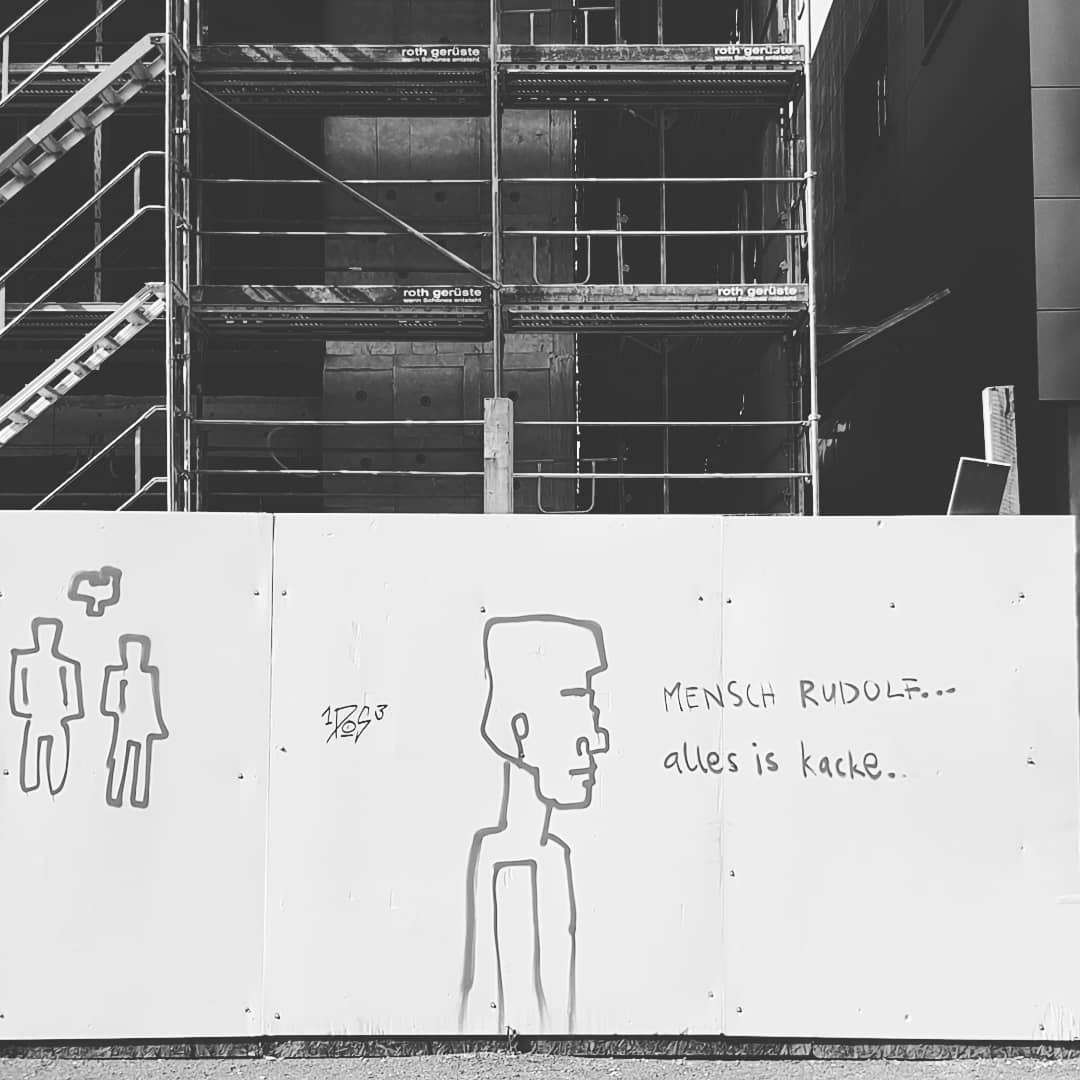 roth gerüste
wenn Schönes entsteht
roth gerüste
wenn Schönes entsteht
roth gerüste
wenn Schönes entsteht
roth gerüste
wenn Schönes entsteht
MENSCH RUDOLF...
alles is kacke..